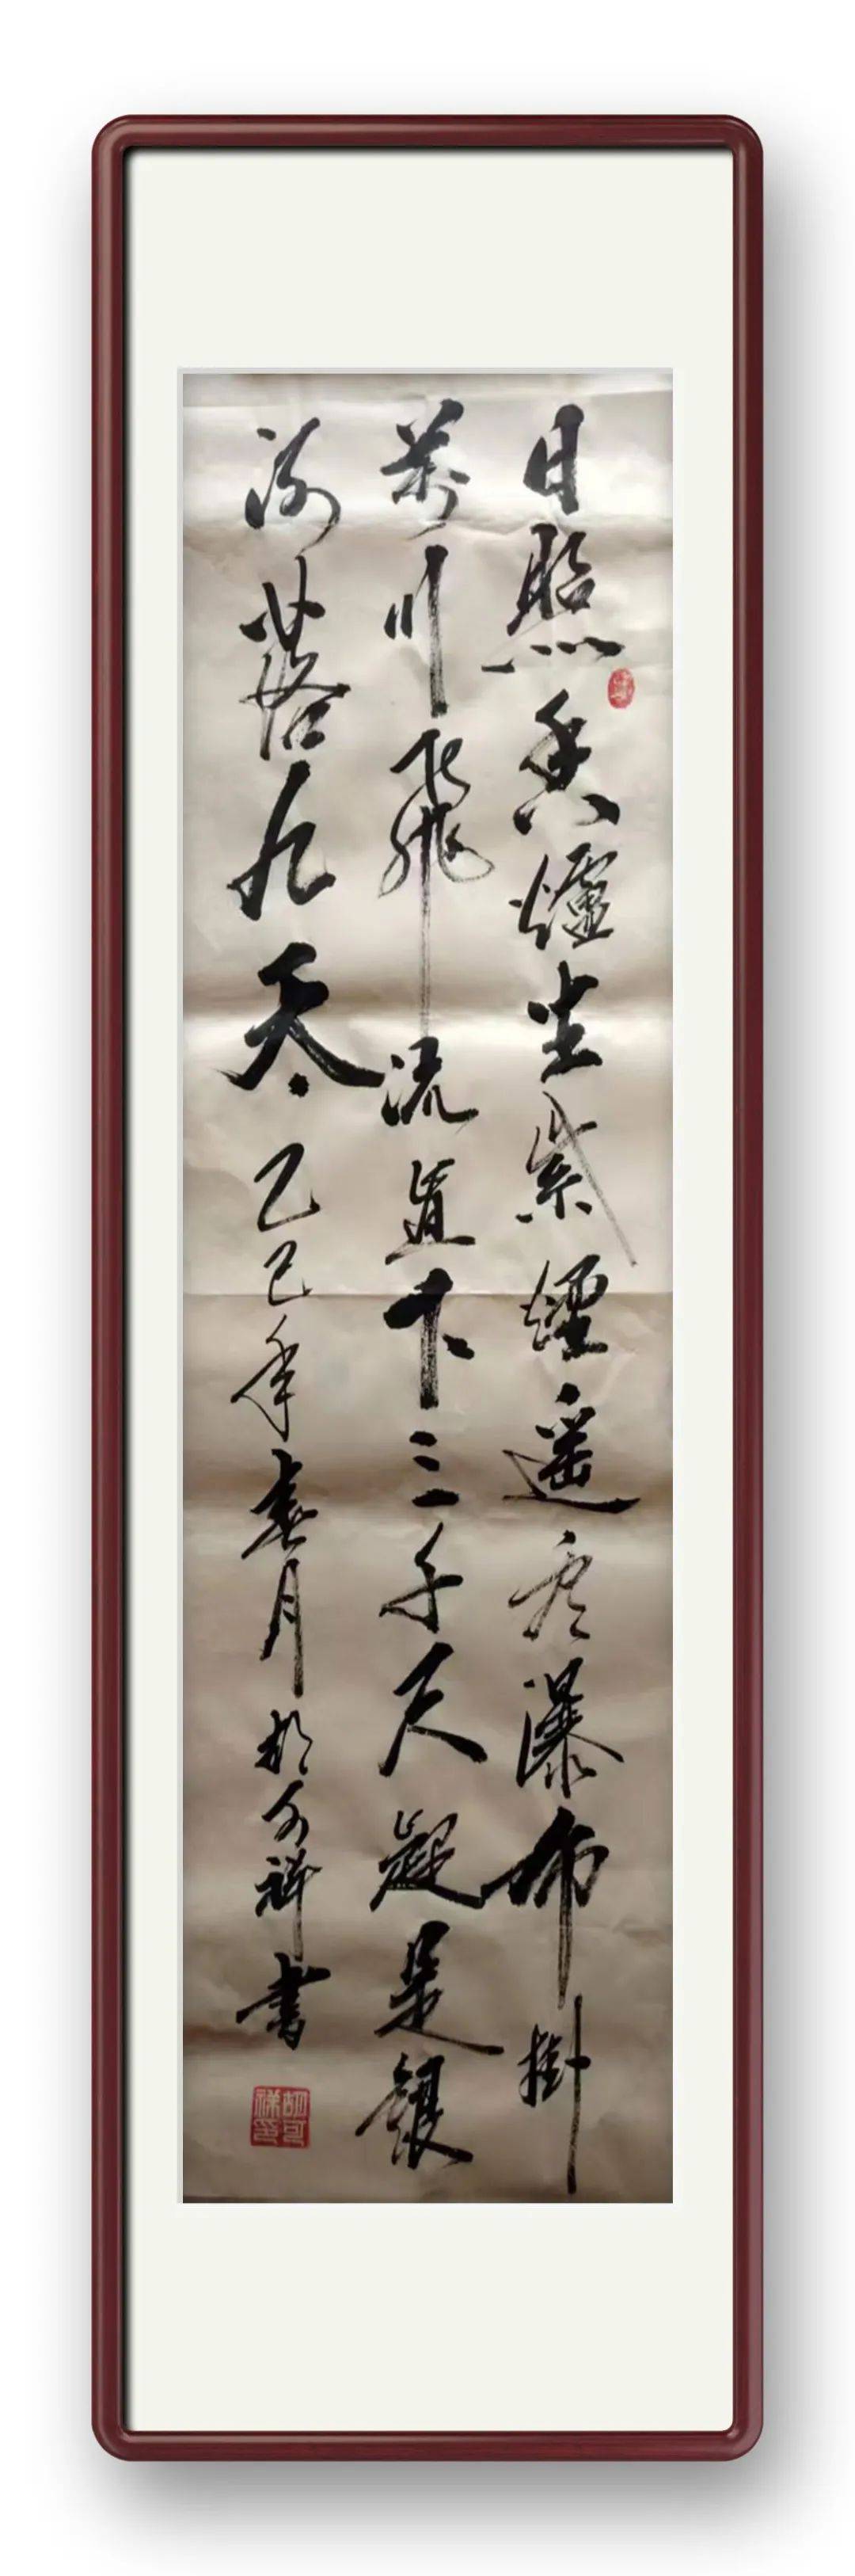 日照香爐生紫煙遥看瀑布掛
前川飛流直下三千尺疑是銀
河落九天乙巳年春月胡可祥書
胡可祥印